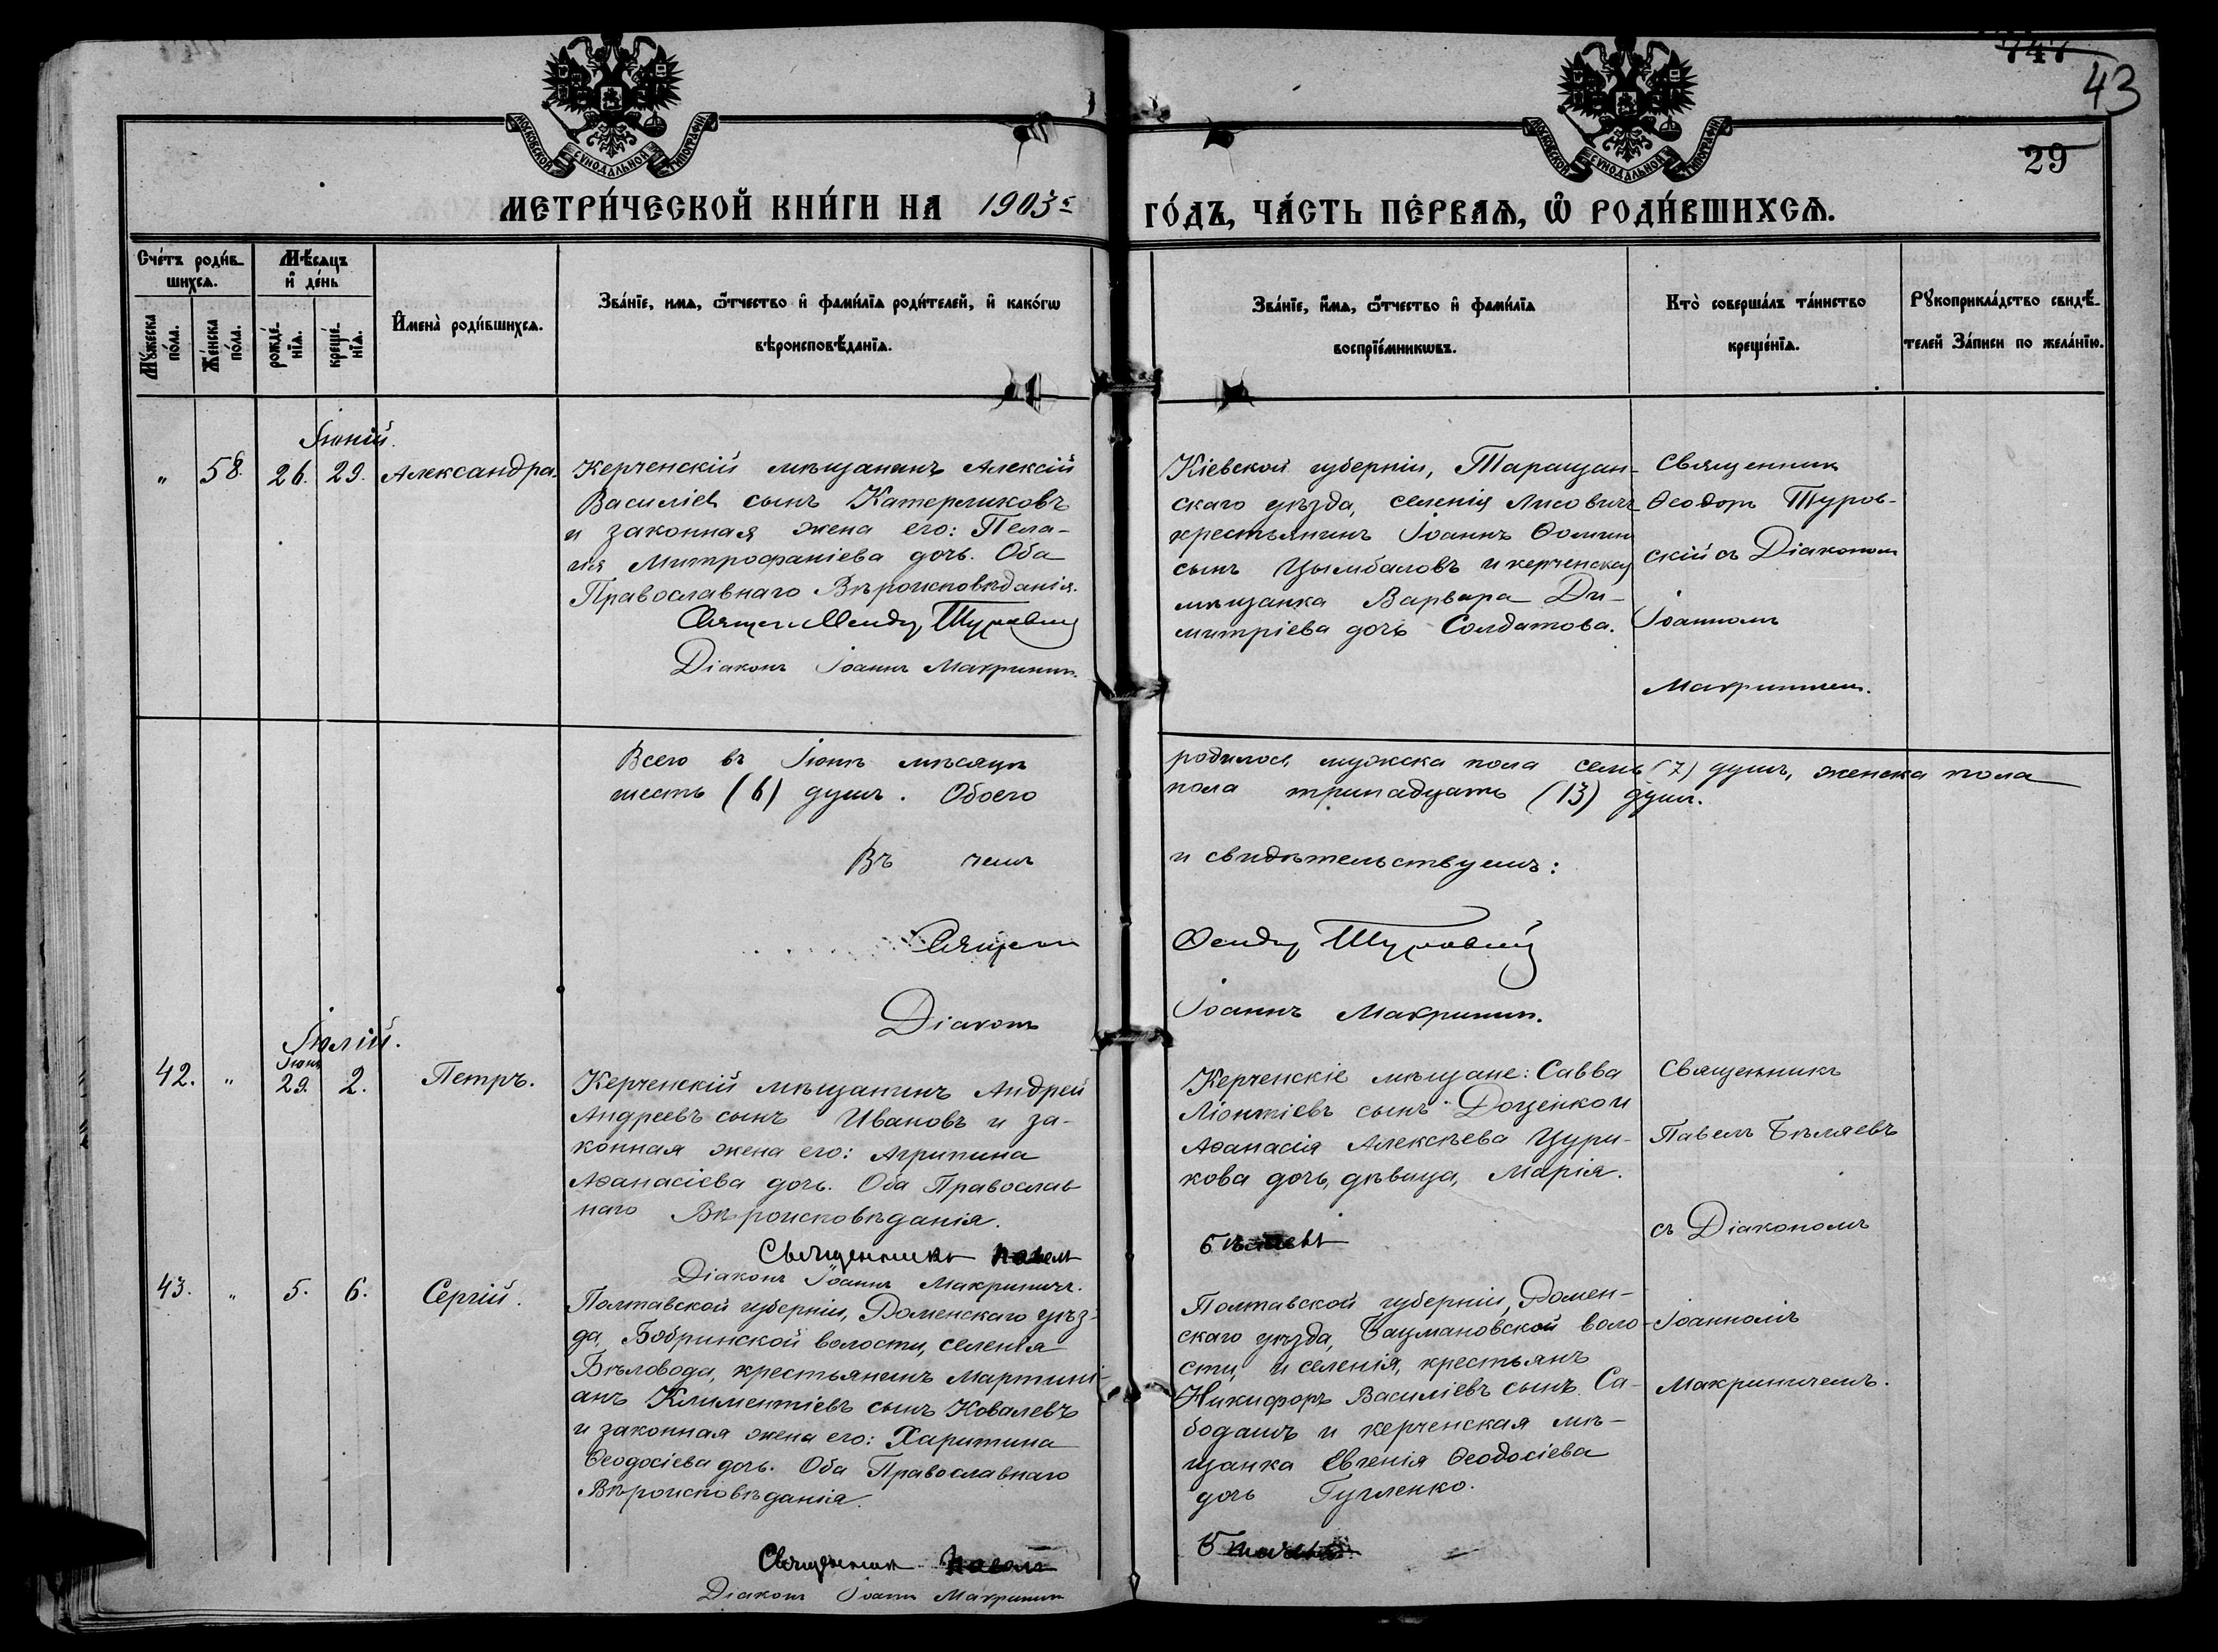 747
43
29
МОСКОВСКОЙ СѴНОДАЛЬНОЙ ТИПОГРАФІИ
МОСКОВСКОЙ СѴНОДАЛЬНОЙ ТИПОГРАФІИ
МЕТРИ́ЧЕСКОЙ КНИ́ГИ НА 1903 г.
ГО́ДЪ, ЧА́СТЬ ПЕ́РВАѦ, Ѡ҆ РОДИ́ВШИХСѦ.
Сче́тъ роди́в-
шихсѧ.
Мꙋ́жеска
по́ла.
Же́нска
по́ла.
Мѣ́сѧцъ
и҆ де́нь
рожде́-
нїѧ.
креще́-
нїѧ.
И҆мена̀ роди́вшихсѧ.
Зва́нїе, имѧ, ѻ҆́тчество и҆ фами́лїѧ роди́телей, и҆ како́гѡ
вѣроисповѣ́данїѧ.
Зва́нїе, и҆́мѧ, ѻ҆́тчество и҆ фами́лїѧ
воспрїе́мникѡвъ.
Кто̀ соверша́лъ та́инство
креще́нїѧ.
Рꙋкоприкла́дство свидѣ́-
телей За́писи по жела́нїю.
Іюній.
" 58. 26. 29. Александра.
Керченскій мѣщанинъ Алексій
Василіев сынъ Катерликовъ
и законная жена его: Пела-
гія Митрофаніева дочь. Оба
Православнаго Вѣроисповѣданія.
Діаконъ Іоаннъ Макринич.
Кіевской губерніи, Таращан-
скаго уѣзда, селенія Лисовичъ
крестьянинъ Іоаннъ Ѳомин
сынъ Цымбаловъ и керченская
мѣщанка Варвара Ди-
митріева дочь Солдатова.
Священник
Ѳеодоръ Туров-
скій съ Діаконом
Іоанномъ
Макриничем.
Всего въ Іюнѣ мѣсяцѣ
родилось мужска пола семь (7) душъ, женска пола
шесть (6) душъ. Обоего
пола тринадцать (13) душ.
Въ чемъ
и свидѣтельствуемъ:
Священ
Ѳеодор Туровскій
Діаконъ
Іоаннъ Макринич.
Іюлій.
42. " Іюнь 29. 2. Петръ.
Керченскій мѣщанинъ Андрей
Андреевъ сынъ Ивановъ и за-
конная жена его: Агрипина
Аѳанасіева дочь. Оба Православ
наго Вѣроисповѣданія.
Священникъ Павелъ
Діаконъ Іоаннъ Макриничъ.
Керченскіе мѣщане: Савва
Ліонтіевъ сынъ Доценко и
Аѳанасія Алексѣева Цури-
кова дочь, дѣвица, Марія.
Бѣляевъ
Священникъ
Павелъ Бѣляевъ
съ Діакономъ
Іоанномъ
Макриничемъ.
43. " 5. 6. Сергій.
Полтавской губерніи, Роменскаго уѣз-
да, Бобринской волости, селенія
Бѣловода, крестьянинъ Мартині-
анъ Климентіевъ сынъ Ковалевъ
и законная жена его: Харитина
Ѳеодосіева дочь. Оба Православнаго
Вѣроисповѣданія.
Священник Павел
Діаконъ Іоаннъ Макринич
Полтавской губерніи, Ромен-
скаго уѣзда, Бацмановской воло-
сти, и селенія, крестьянъ
Никифоръ Василіевъ сынъ Са-
бодашъ и керченская мѣ-
щанка Евгенія Ѳеодосіева
дочь Гугленко.
Бѣляевъ